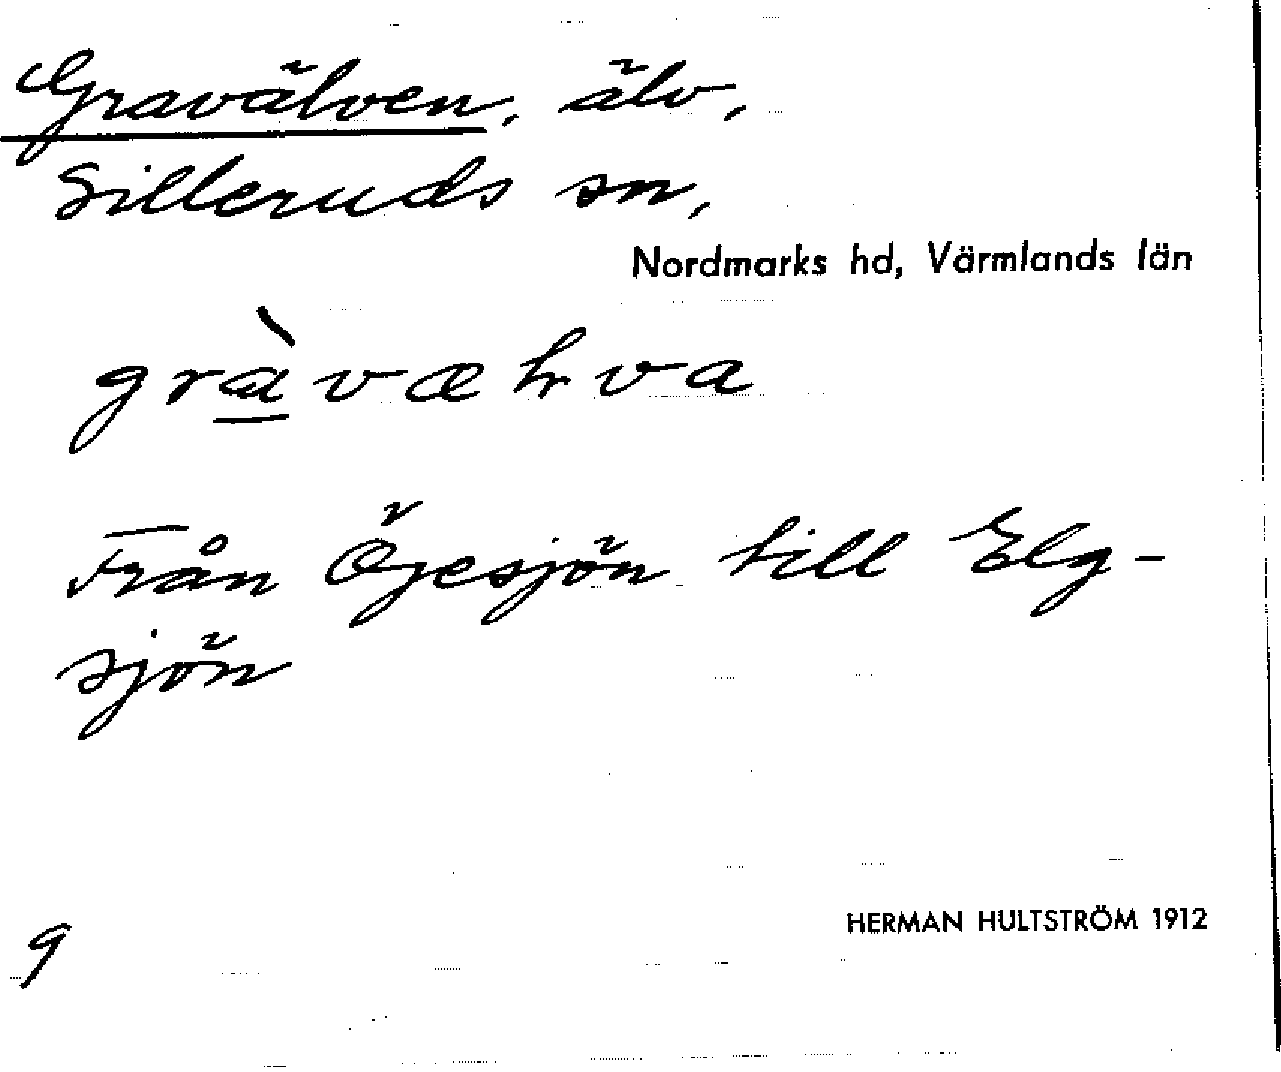 Gravälven, älv,
Silleruds sn,
Nordmarks hd, Värmlands län
grà̲vælva
Från Öjesjön till Elg-
sjön
HERMAN HULTSTRÖM 1912
9